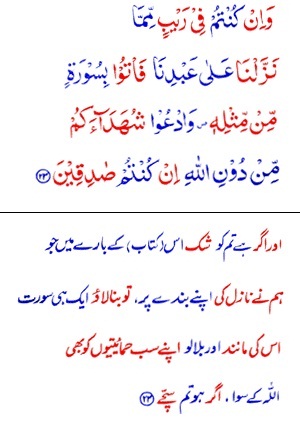 وَاِنْ كُنْتُمْ فِىْ رَيْبٍ مِّمَّا
نَزَّلْنَا عَلٰى عَبْدِنَا فَاْتُوْا بِسُوْرَةٍ
مِّنْ مِّثْلِهٖ ۖ وَادْعُوْا شُهَدَآءَكُمْ
مِّنْ دُوْنِ اللّٰهِ اِنْ كُنْتُمْ صٰدِقِيْنَ ﴿۲۳﴾
اور اگر ہے تم کو شک اس (کتاب) کے بارے میں جو
ہم نے نازل کی اپنے بندے پر، تو بنا لاؤ ایک ہی سورت
اس کی مانند اور بلا لو اپنے سب حمائیتیوں کو بھی
اللہ کے سوا، اگر ہو تم سچّے ﴿۲۳﴾